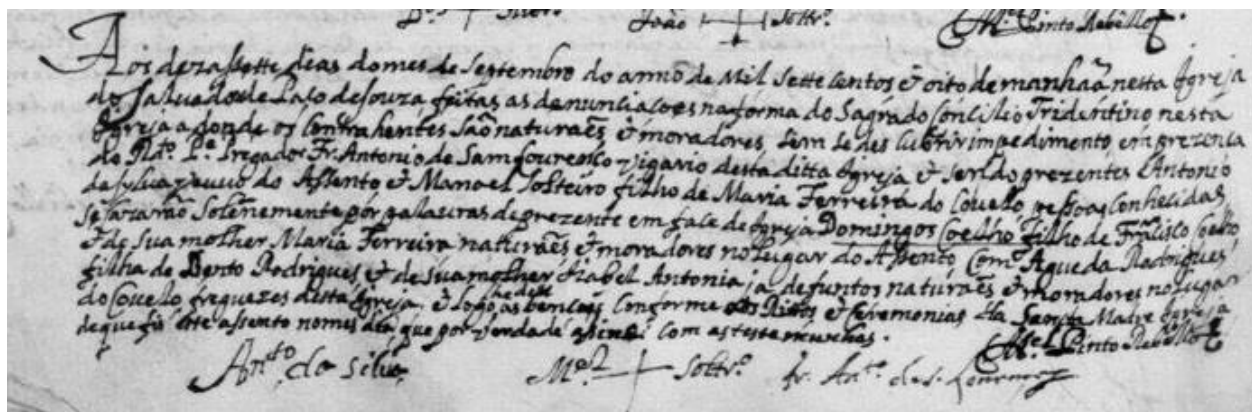 João Soltr.º M.el Pinto Rebello
Aos dezassette dias do mes de Septembro do anno de Mil sette centos & oito de manhaã nesta Igreja
do Salvador de Paço de Souza feitas as denunciacoes na forma do Sagrado Concilio Tridentino nesta
Igreja adonde os contrahentes saõ naturaẽs & moradores, sem se descubrir impedimento, em prezenca
do P.e Pregador Fr. Antonio de Sam Lourenço Vigario desta ditta Igreja & sendo prezentes Antonio
da Sylva do Assento & Manoel solteiro filho de Maria Ferreira do Covello pessoas conhecidas,
se cazaraõ solẽnemente por palauras de prezente em face de Igreja Domingos Coelho filho de Francisco Coelho
& de sua molher Maria Ferreira naturaẽs & moradores no lugar do Assento, com Agueda Rodrigues
filha de Bento Rodrigues & de sua molher Izabel Antonia ja defuntos naturaẽs & moradores no lugar
do Covello freguezes desta Igreja, & logo lhe dei as bencoẽs conforme os Rittos & Ceremonias da Santa Madre Igreja
de que fis este assento no mes dia que por verdade asinei com as testemunhas.
M.el Pinto Rebello
Ant.º da Silva M.el Soltr.º fr. Ant.º de S. Lourenço